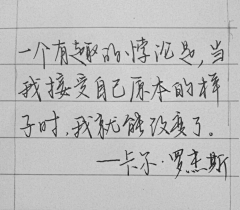 一个有趣的悖论是，当
我接受自己原本的样
子时，我就能改变了。
—卡尔·罗杰斯